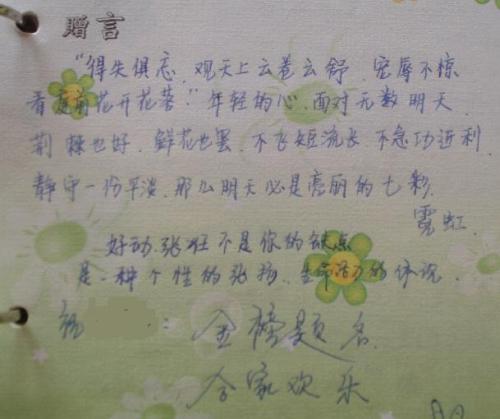 赠言
“得失俱忘，观天上云卷云舒，宠辱不惊
看庭前花开花落。”年轻的心，面对无数明天
荆棘也好，鲜花也罢，不飞短流长，不急功近利，
静守一份平淡，那么明天必是亮丽的七彩
霓虹.
好动、张狂不是你的缺点
是一种个性的张扬，生命活力的体现.
祝 ：金榜题名
合家欢乐